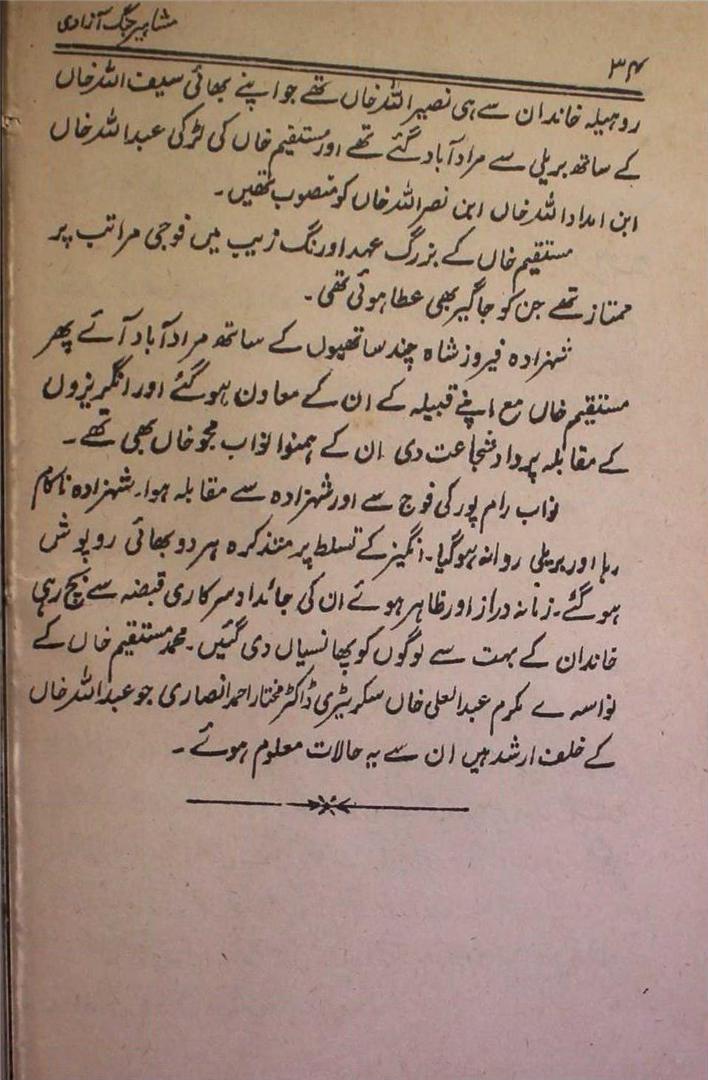 مشاہیر جنگ آزادی
۳۴
روہیلہ خاندان سے ہی نصیر اللہ خاں تھے جو اپنے بھائی سیف اللہ خاں
کے ساتھ بریلی سے مرادآباد گئے تھے اور مستقیم خاں کی لڑکی عبداللہ خاں
ابن امداد اللہ خاں ابن نصر اللہ خاں کو منصوب تھیں۔
مستقیم خاں کے بزرگ عہد اورنگ زیب میں فوجی مراتب پر
ممتاز تھے جن کو جاگیر بھی عطا ہوئی تھی۔
شہزادہ فیروز شاہ چند ساتھیوں کے ساتھ مرادآباد آئے پھر
مستقیم خاں مع اپنے قبیلہ کے ان کے معاون ہو گئے اور انگریزوں
کے مقابلہ پر داد شجاعت دی ان کے ہمنوا نواب مجو خاں بھی تھے۔
نواب رام پور کی فوج سے اور شہزادہ سے مقابلہ ہوا۔ شہزادہ ناکام
رہا اور بریلی روانہ ہو گیا۔ انگریز کے تسلط پر متذکرہ ہر دو بھائی روپوش
ہو گئے۔ زمانہ دراز اور ظاہر ہوئے ان کی جائداد سرکاری قبضہ سے بچ رہی
خاندان کے بہت سے لوگوں کو پھانسیاں دی گئیں۔ محمد مستقیم خاں کے
نواسہ ے مکرم عبدالعلی خاں سکریٹری ڈاکٹر مختار احمد انصاری جو عبداللہ خاں
کے خلف ارشد ہیں ان سے یہ حالات معلوم ہوئے۔